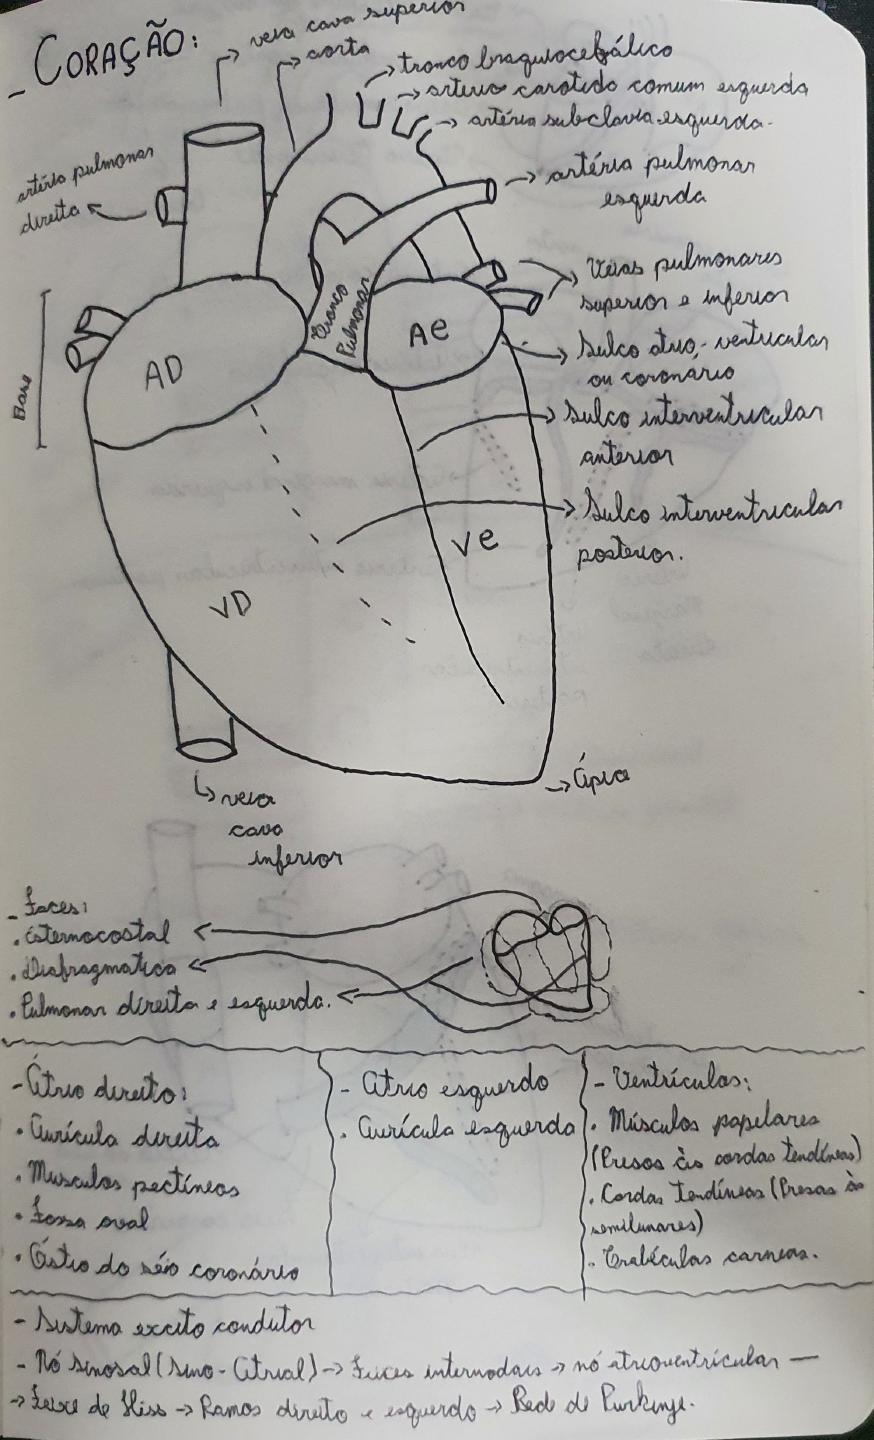 - CORAÇÃO:
veia cava superior
aorta
tronco braquiocefálico
artéria carotida comum esquerda
artéria subclavia esquerda.
artéria pulmonar
direita
artéria pulmonar
esquerda
Veias pulmonares
superior e inferior
Tronco
Pulmonar
AD
AE
Base
Sulco atrio-ventricular
ou coronário
Sulco interventricular
anterior
Sulco interventricular
posterior.
VE
VD
Ápice
veia
cava
inferior
- Faces:
. Esternocostal
. Diafragmatica
. Pulmonar direita e esquerda.
- Átrio direito:
• Aurícula direita
• Musculos pectíneos
• Fossa oval
• Óstio do séio coronário
- Atrio esquerdo
. Aurícula esquerda
- Ventrículos:
• Músculos papilares
(Presos às cordas tendíneas)
. Cordas tendíneas (Presas às
semilunares)
. Trabéculas carneas.
- Sistema excito condutor
- Nó sinosal (Sino-Atrial) → Feixes internodais → nó atrioventricular —
→ Feixe de Hiss → Ramos direito e esquerdo → Rede de Purkinje.